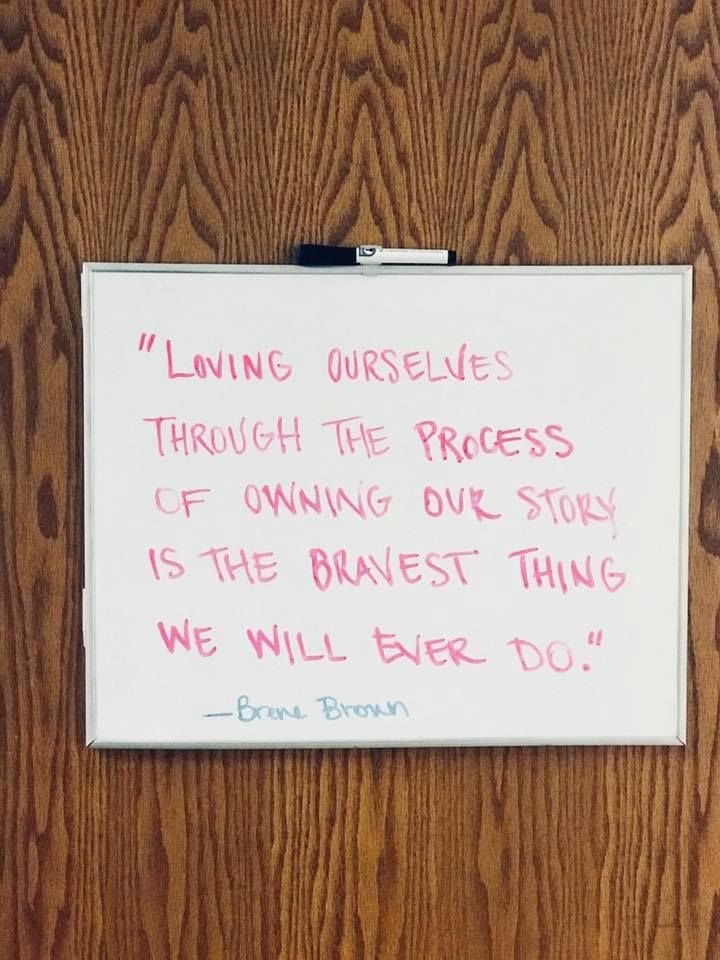 "LOVING OURSELVES
THROUGH THE PROCESS
OF OWNING OUR STORY
IS THE BRAVEST THING
WE WILL EVER DO."
—Brene Brown